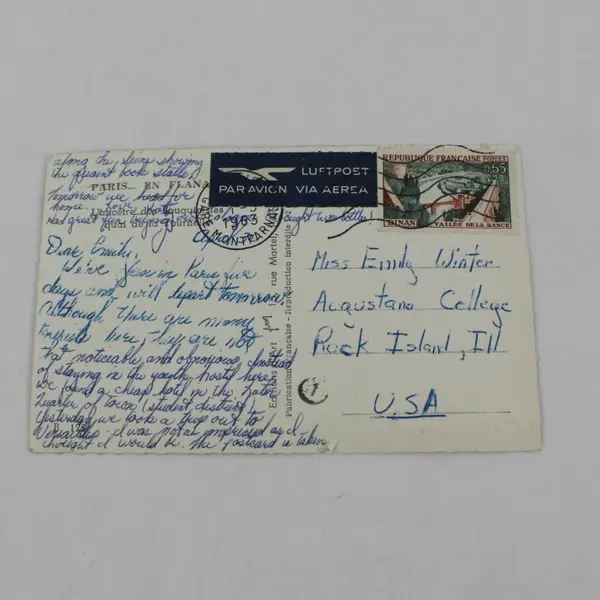 along the Seine showing
the quaint book stalls.
Tomorrow we head for
home. Love, Dorothy
Had great fun
bought two bottles!
PARIS... EN FLANA
L'ancêtre des Bouquinistes
quai de la Tourne
LUFTPOST
PAR AVION VIA AEREA
1963
GARE MONTPARNASSE
REPUBLIQUE FRANÇAISE POSTES
0,65
DINAN VALLÉE DE LA RANCE
Dear Emily,
We've been in Paris five
days and will depart tomorrow.
Although there are many
tourists here, they are not
that noticeable and obnoxious. Instead
of staying in the youth hostel here,
we found a cheap hotel in the Latin
Quarter of town (student district).
Yesterday we took a trip out to
Versailles - I was not as impressed as I
thought I would be. The postcard is taken
Editions d'art
rue Martel,
Fabrication Française - Reproduction interdite
Miss Emily Winter
Augustana College
Rock Island, Ill
USA